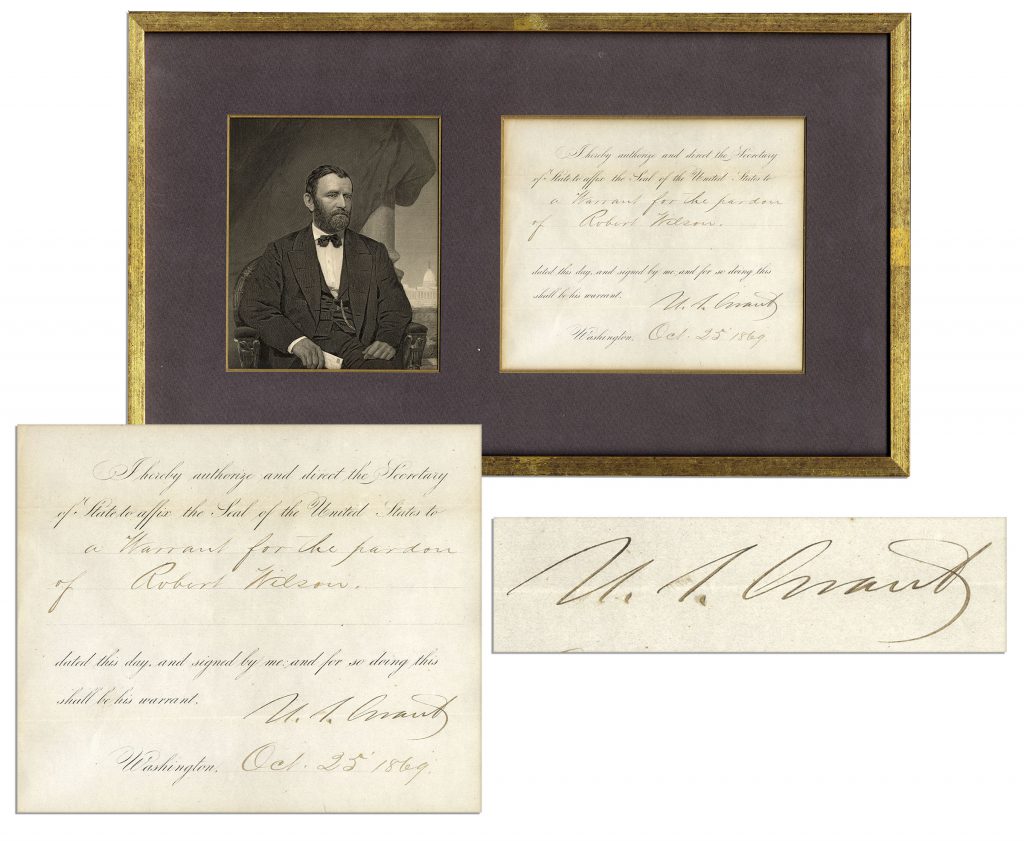 I hereby authorize and direct the Secretary
of State to affix the Seal of the United States to
a Warrant for the pardon
of Robert Wilson.
dated this day, and signed by me; and for so doing this
shall be his warrant.
U. S. Grant
Washington, Oct. 25 1869.
I hereby authorize and direct the Secretary
of State to affix the Seal of the United States to
a Warrant for the pardon
of Robert Wilson.
dated this day, and signed by me; and for so doing this
shall be his warrant.
U. S. Grant
Washington, Oct. 25 1869.
U. S. Grant